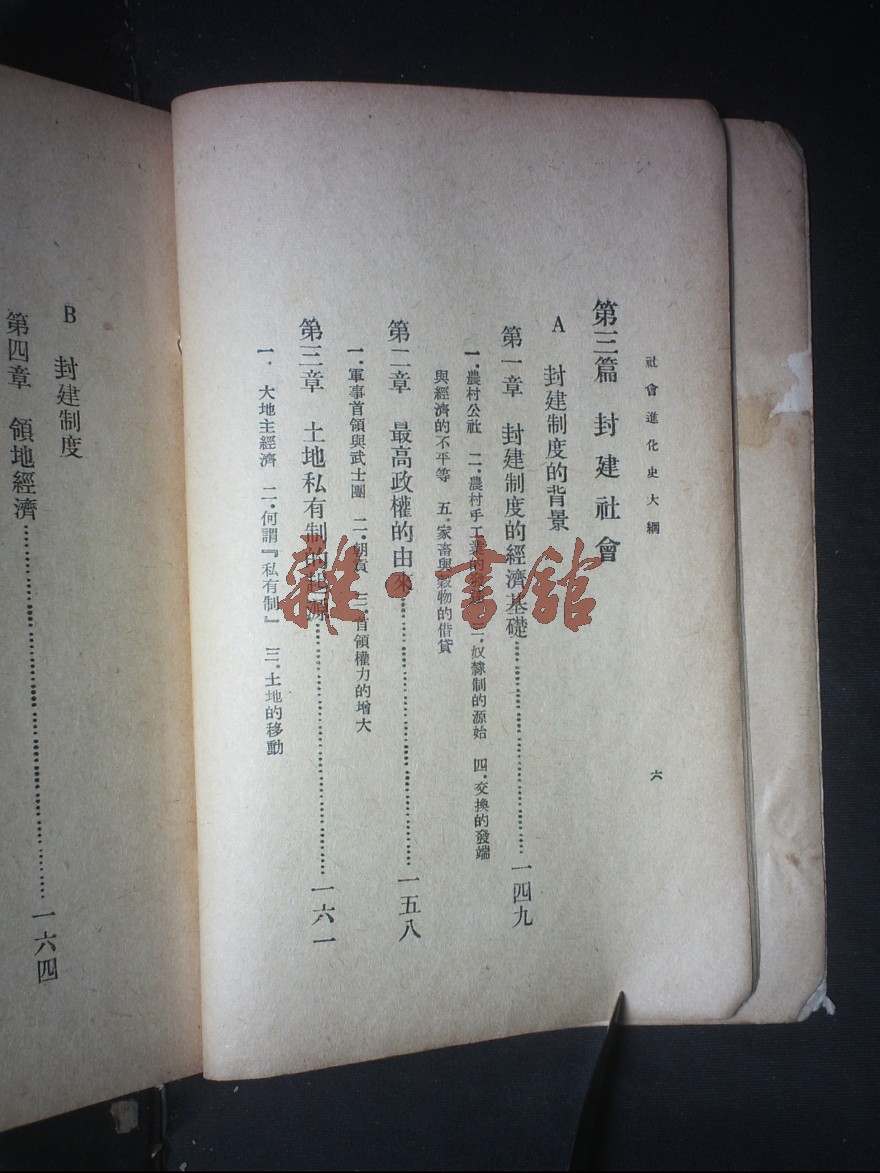 社會進化史大綱
六
第三篇 封建社會
A 封建制度的背景
第一章 封建制度的經濟基礎……一四九
一.農村公社 二.農村手工業的 三.奴隸制的源始 四.交換的發端
與經濟的不平等 五.家畜與穀物的借貸
第二章 最高政權的由來……一五八
一.軍事首領與武士團 二.朝貢 三.首領權力的增大
第三章 土地私有制的起源……一六一
一. 大地主經濟 二.何謂『私有制』 三.土地的移動
B 封建制度
第四章 領地經濟……一六四
雜·書館